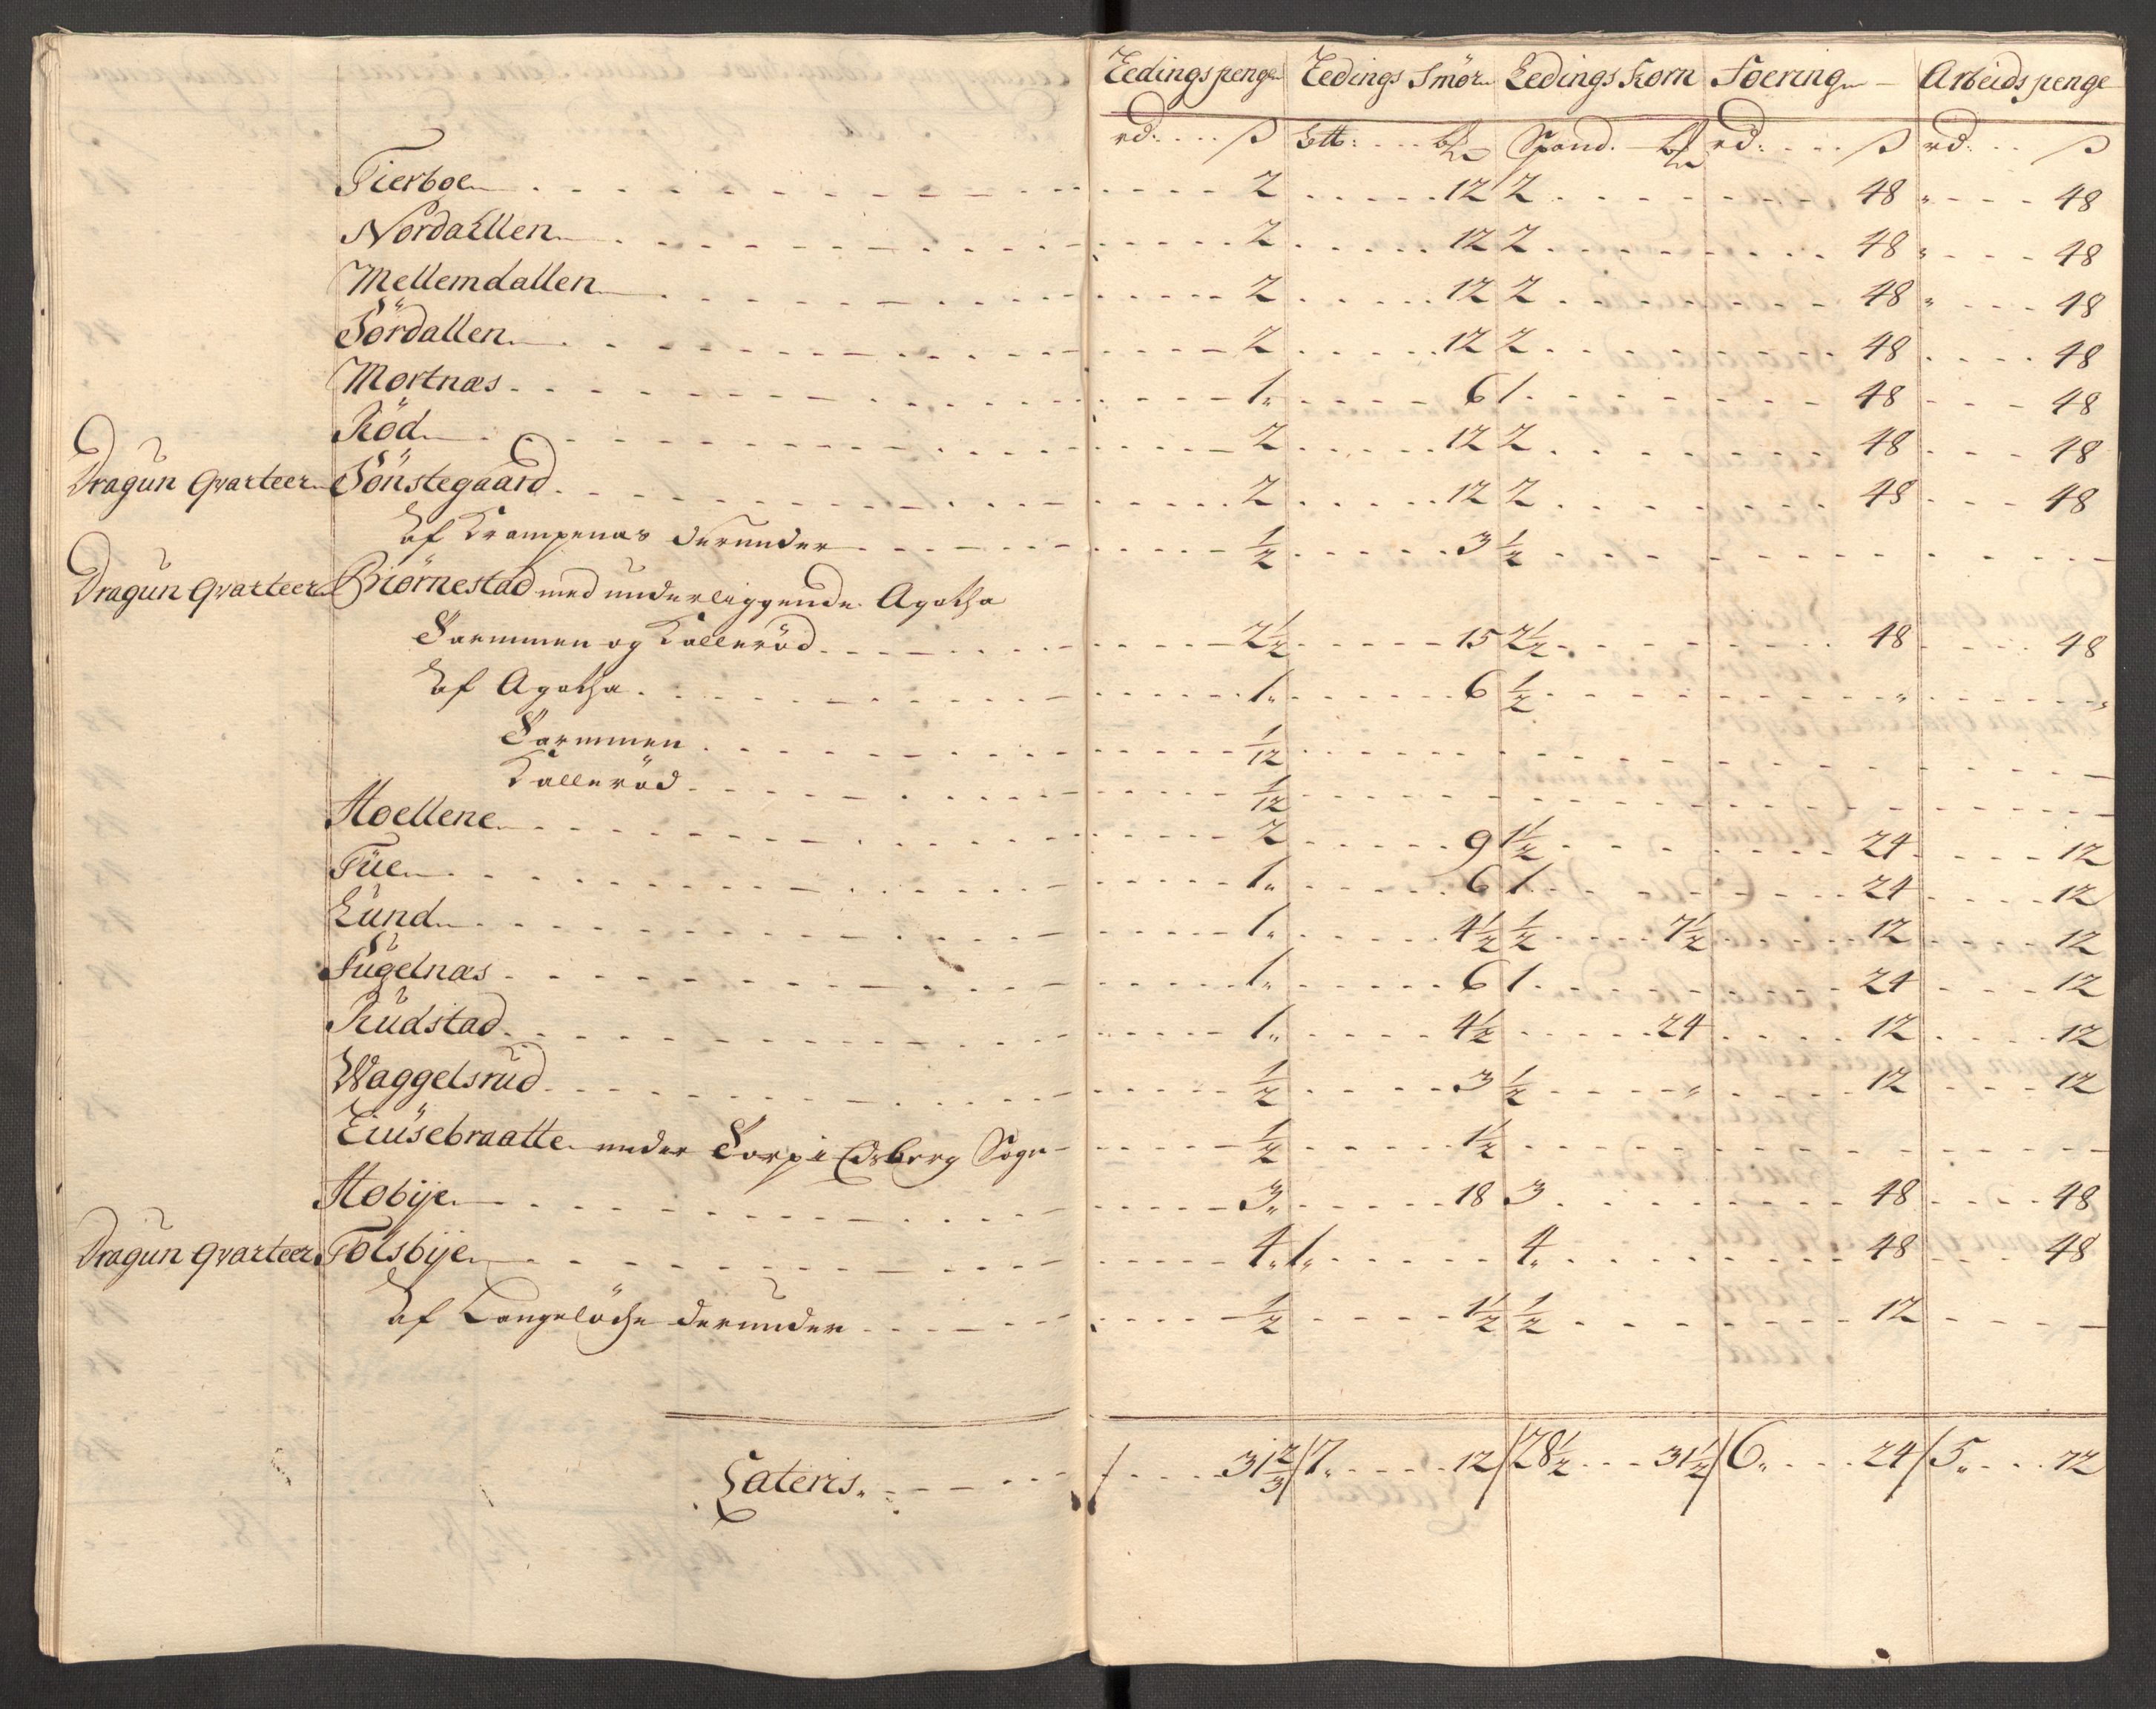 Ledings penge Ledings Smör Ledings Korn Foering Arbeids penge
rd: ß rd: ß rd: ß
Tierboe 2 12 2 48 48
Nordallen 2 12 2 48 48
Mellemdallen 2 12 2 48 48
Sördallen 2 12 2 48 48
Mortnæs 1 6 1 48 48
Röd 2 12 2 48 48
Dragun Qvarteer Sönstegaard 2 12 2 48 48
Af Krampenæs derunder ½ 3 ½
Dragun Qvarteer Biörnestad med underliggende Agatha
Sarmmen og Kalleröd 2½ 15 2½ 48 48
Af Agatha 1 6 ½
Sarmmen 1/12
Kalleröd 1/12
Hoellene 2 9 1½ 24 12
Tüe 1 6 1 24 12
Lund 1 4½ ½ 7½ 12 12
Fugelnæs 1 6 1 24 12
Rudstad 1 4½ 24 12 12
Waggelsrud ½ 3 ½ 12 12
under Torp i Edsberg Sogn ½ 1½
Hobije 3 18 3 48 48
Dragun Qvarteer Tolsbije 4 1 4 48 48
Af Langelöche derunder ½ 1½ ½ 12
Lateris 31⅔ 7 12 28½ 31½ 6 24 5 72